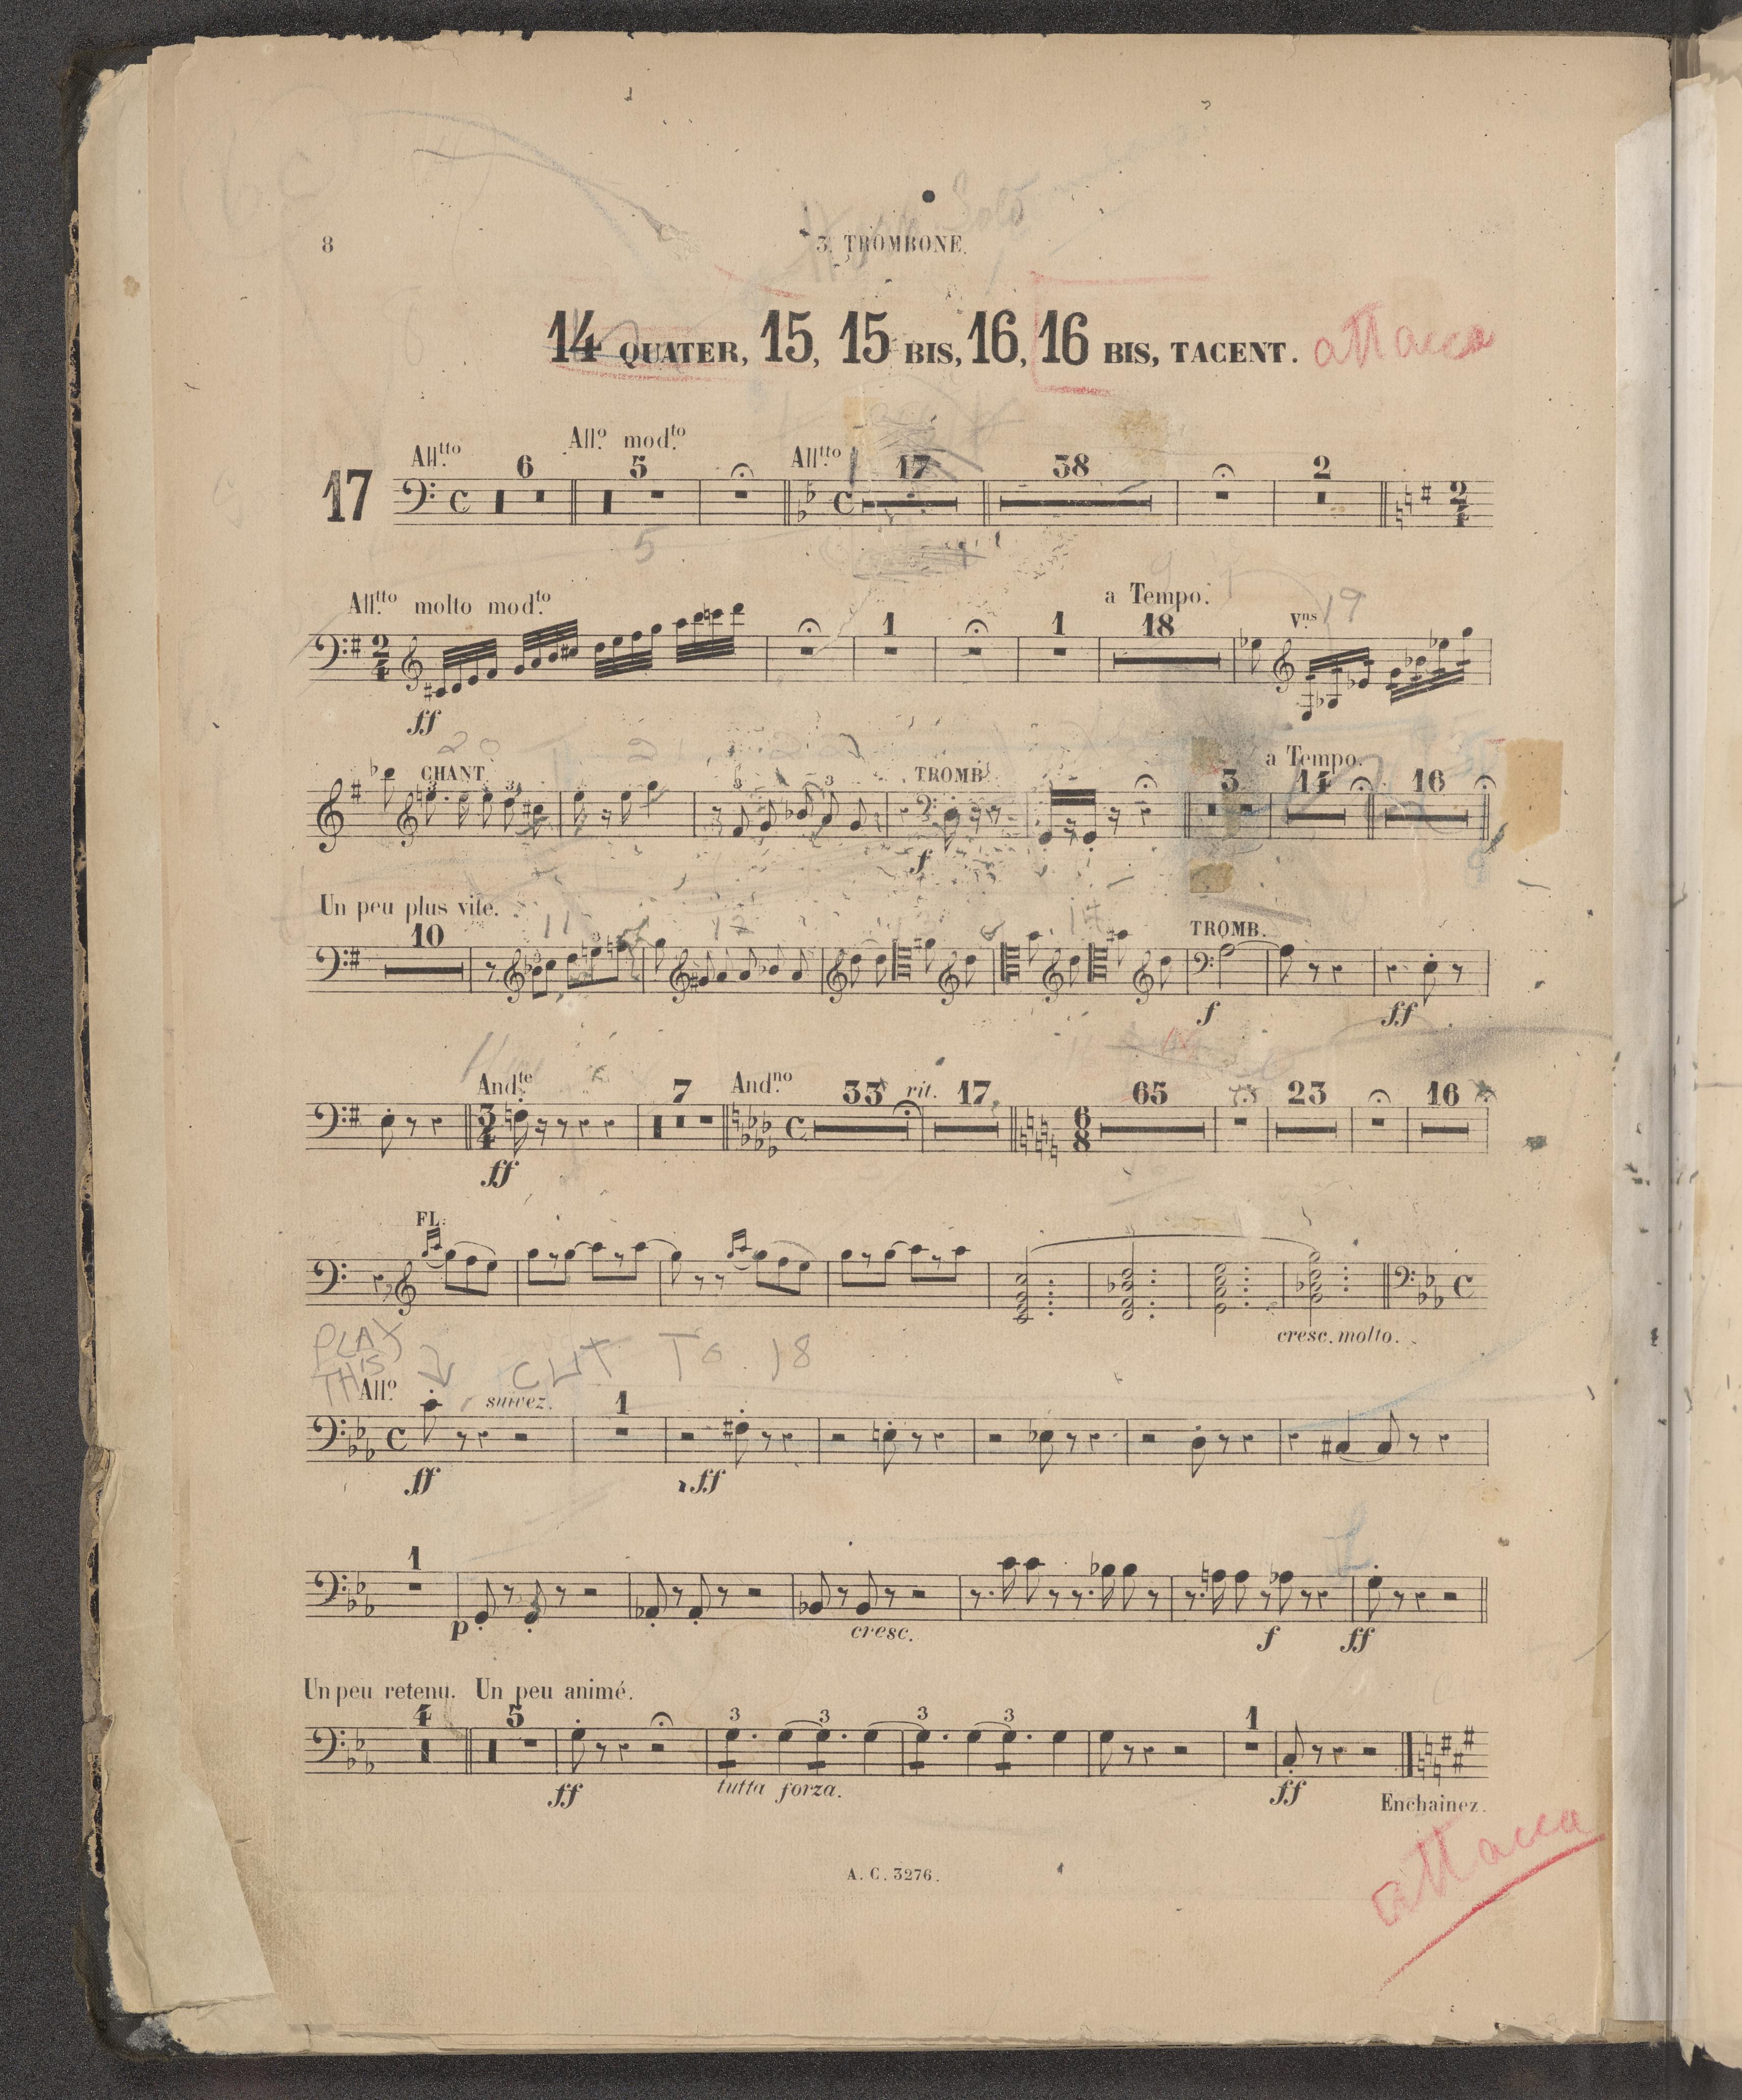 Solo
8
3. TROMBONE.
14 QUATER, 15, 15 BIS, 16, 16 BIS, TACENT. attacca
All.tto 6 All.o mod.to 5 All.tto 17 38 2
17
5
All.tto molto mod.to 1 1 a Tempo. 18 V.ns 19
ff
20 21
CHANT. 3 3 3 3 TROMB. 3 a Tempo. 14 16
f
Un peu plus vite.
10 11 12 14 TROMB.
f ff
And.te 7 And.no 33 rit. 17 65 23 16
ff
FL.
cresc. molto.
PLAY THIS CUT TO 18
All.o suivez. 1
ff ff
1
p cresc. f ff
Un peu retenu. Un peu animé.
4 5 3 3 3 3 1
ff tutta forza. ff Enchainez.
attacca
A. C. 3276.